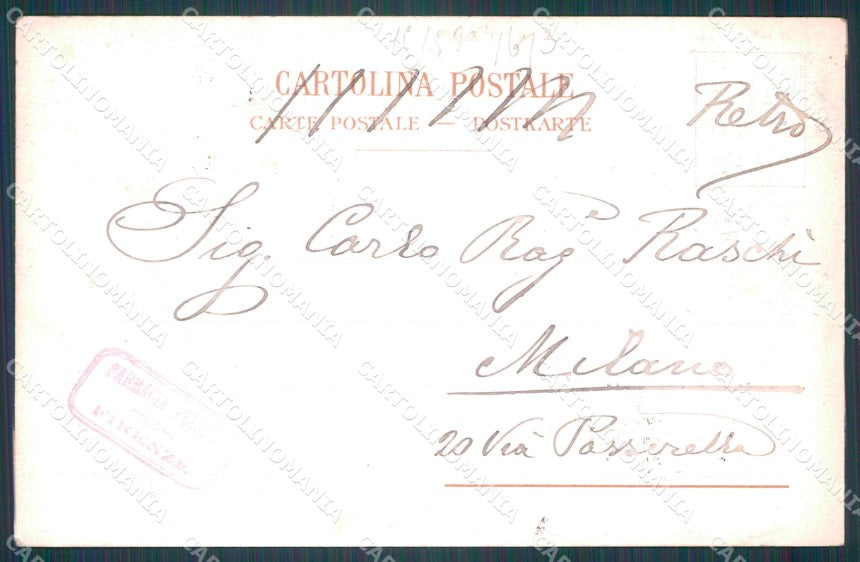 CARTOLINA POSTALE
CARTE POSTALE — POSTKARTE
Retro
Sig. Carlo Rag.e Raschi
Milano
20 Via Passerella
FARMACIA
FIRENZE
CARTOLINOMANIA